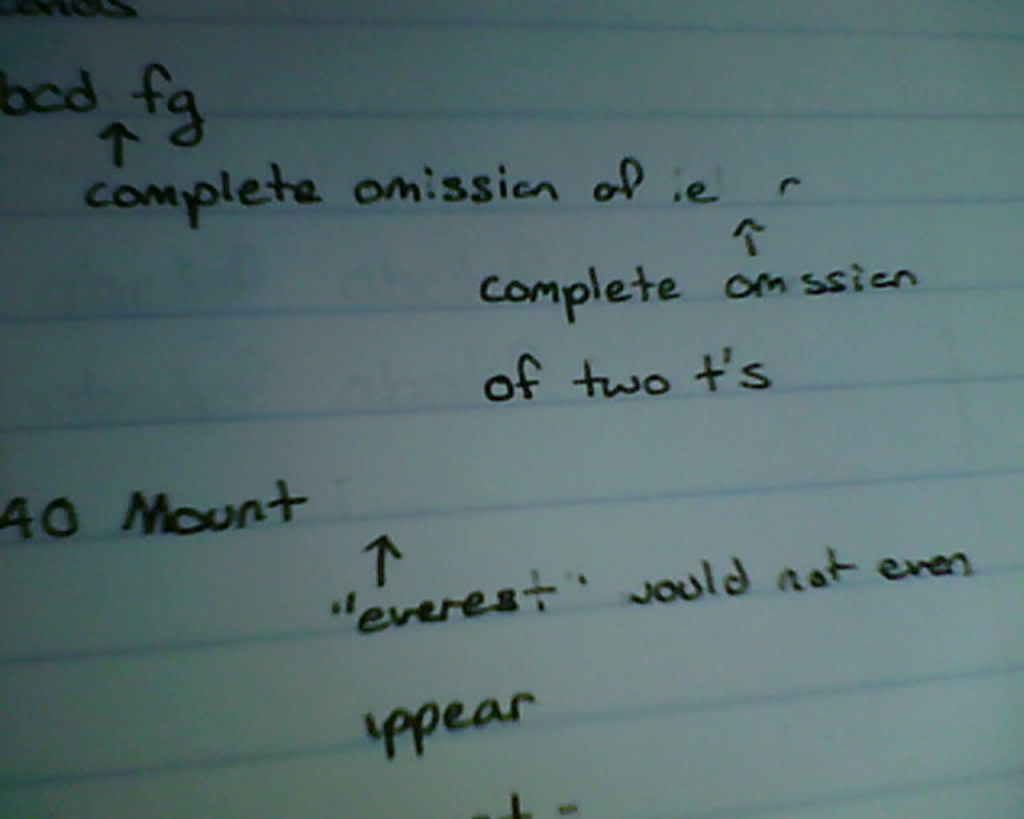 bcd fg
↑
complete omission of ie r
↑
complete om ssion
of two t's
40 Mount
↑
"everest" would not even
appear